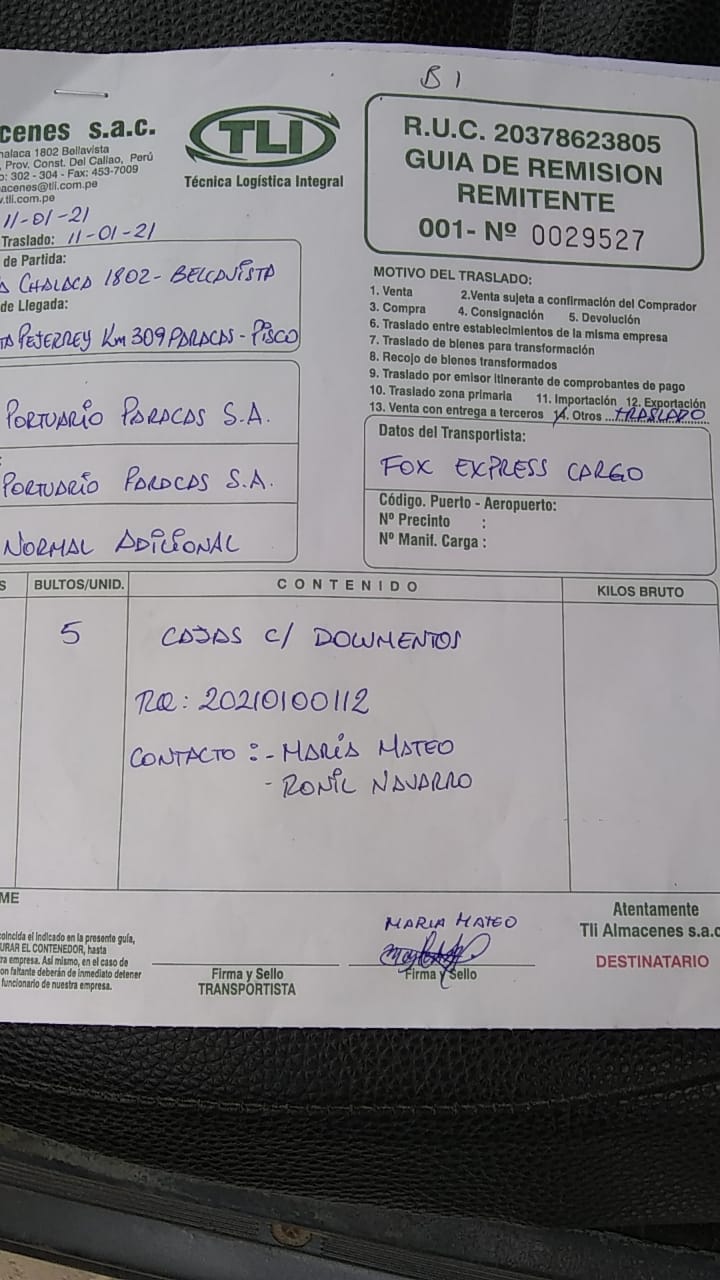 B 1
cenes s.a.c.
halaca 1802 Bellavista
, Prov. Const. Del Callao, Perú
o: 302 - 304 - Fax: 453-7009
acenes@tli.com.pe
w.tli.com.pe
TLI
Técnica Logística Integral
R.U.C. 20378623805
GUIA DE REMISION
REMITENTE
001- Nº 0029527
11-01-21
Traslado: 11-01-21
de Partida:
CHALACA 1802- BELLAVISTA
de Llegada:
PEJERREY Km 309 PARACAS - PISCO
MOTIVO DEL TRASLADO:
1. Venta 2.Venta sujeta a confirmación del Comprador
3. Compra 4. Consignación 5. Devolución
6. Traslado entre establecimientos de la misma empresa
7. Traslado de bienes para transformación
8. Recojo de bienes transformados
9. Traslado por emisor itinerante de comprobantes de pago
10. Traslado zona primaria 11. Importación 12. Exportación
13. Venta con entrega a terceros 14. Otros ...TRASLADO
PORTUARIO PARACAS S.A.
PORTUARIO PARACAS S.A.
NORMAL ADICIONAL
Datos del Transportista:
FOX EXPRESS CARGO
Código. Puerto - Aeropuerto:
Nº Precinto :
Nº Manif. Carga :
S BULTOS/UNID. CONTENIDO KILOS BRUTO
5 CAJAS C/ DOCUMENTOS
RQ: 20210100112
CONTACTO :- MARÍA MATEO
- RONIL NAVARRO
ME
coincida el indicado en la presente guía,
URAR EL CONTENEDOR, hasta
ra empresa. Así mismo, en el caso de
on faltante deberán de inmediato detener
funcionario de nuestra empresa.
Firma y Sello
TRANSPORTISTA
MARIA MATEO
Firma y Sello
Atentamente
Tli Almacenes s.a.c
DESTINATARIO